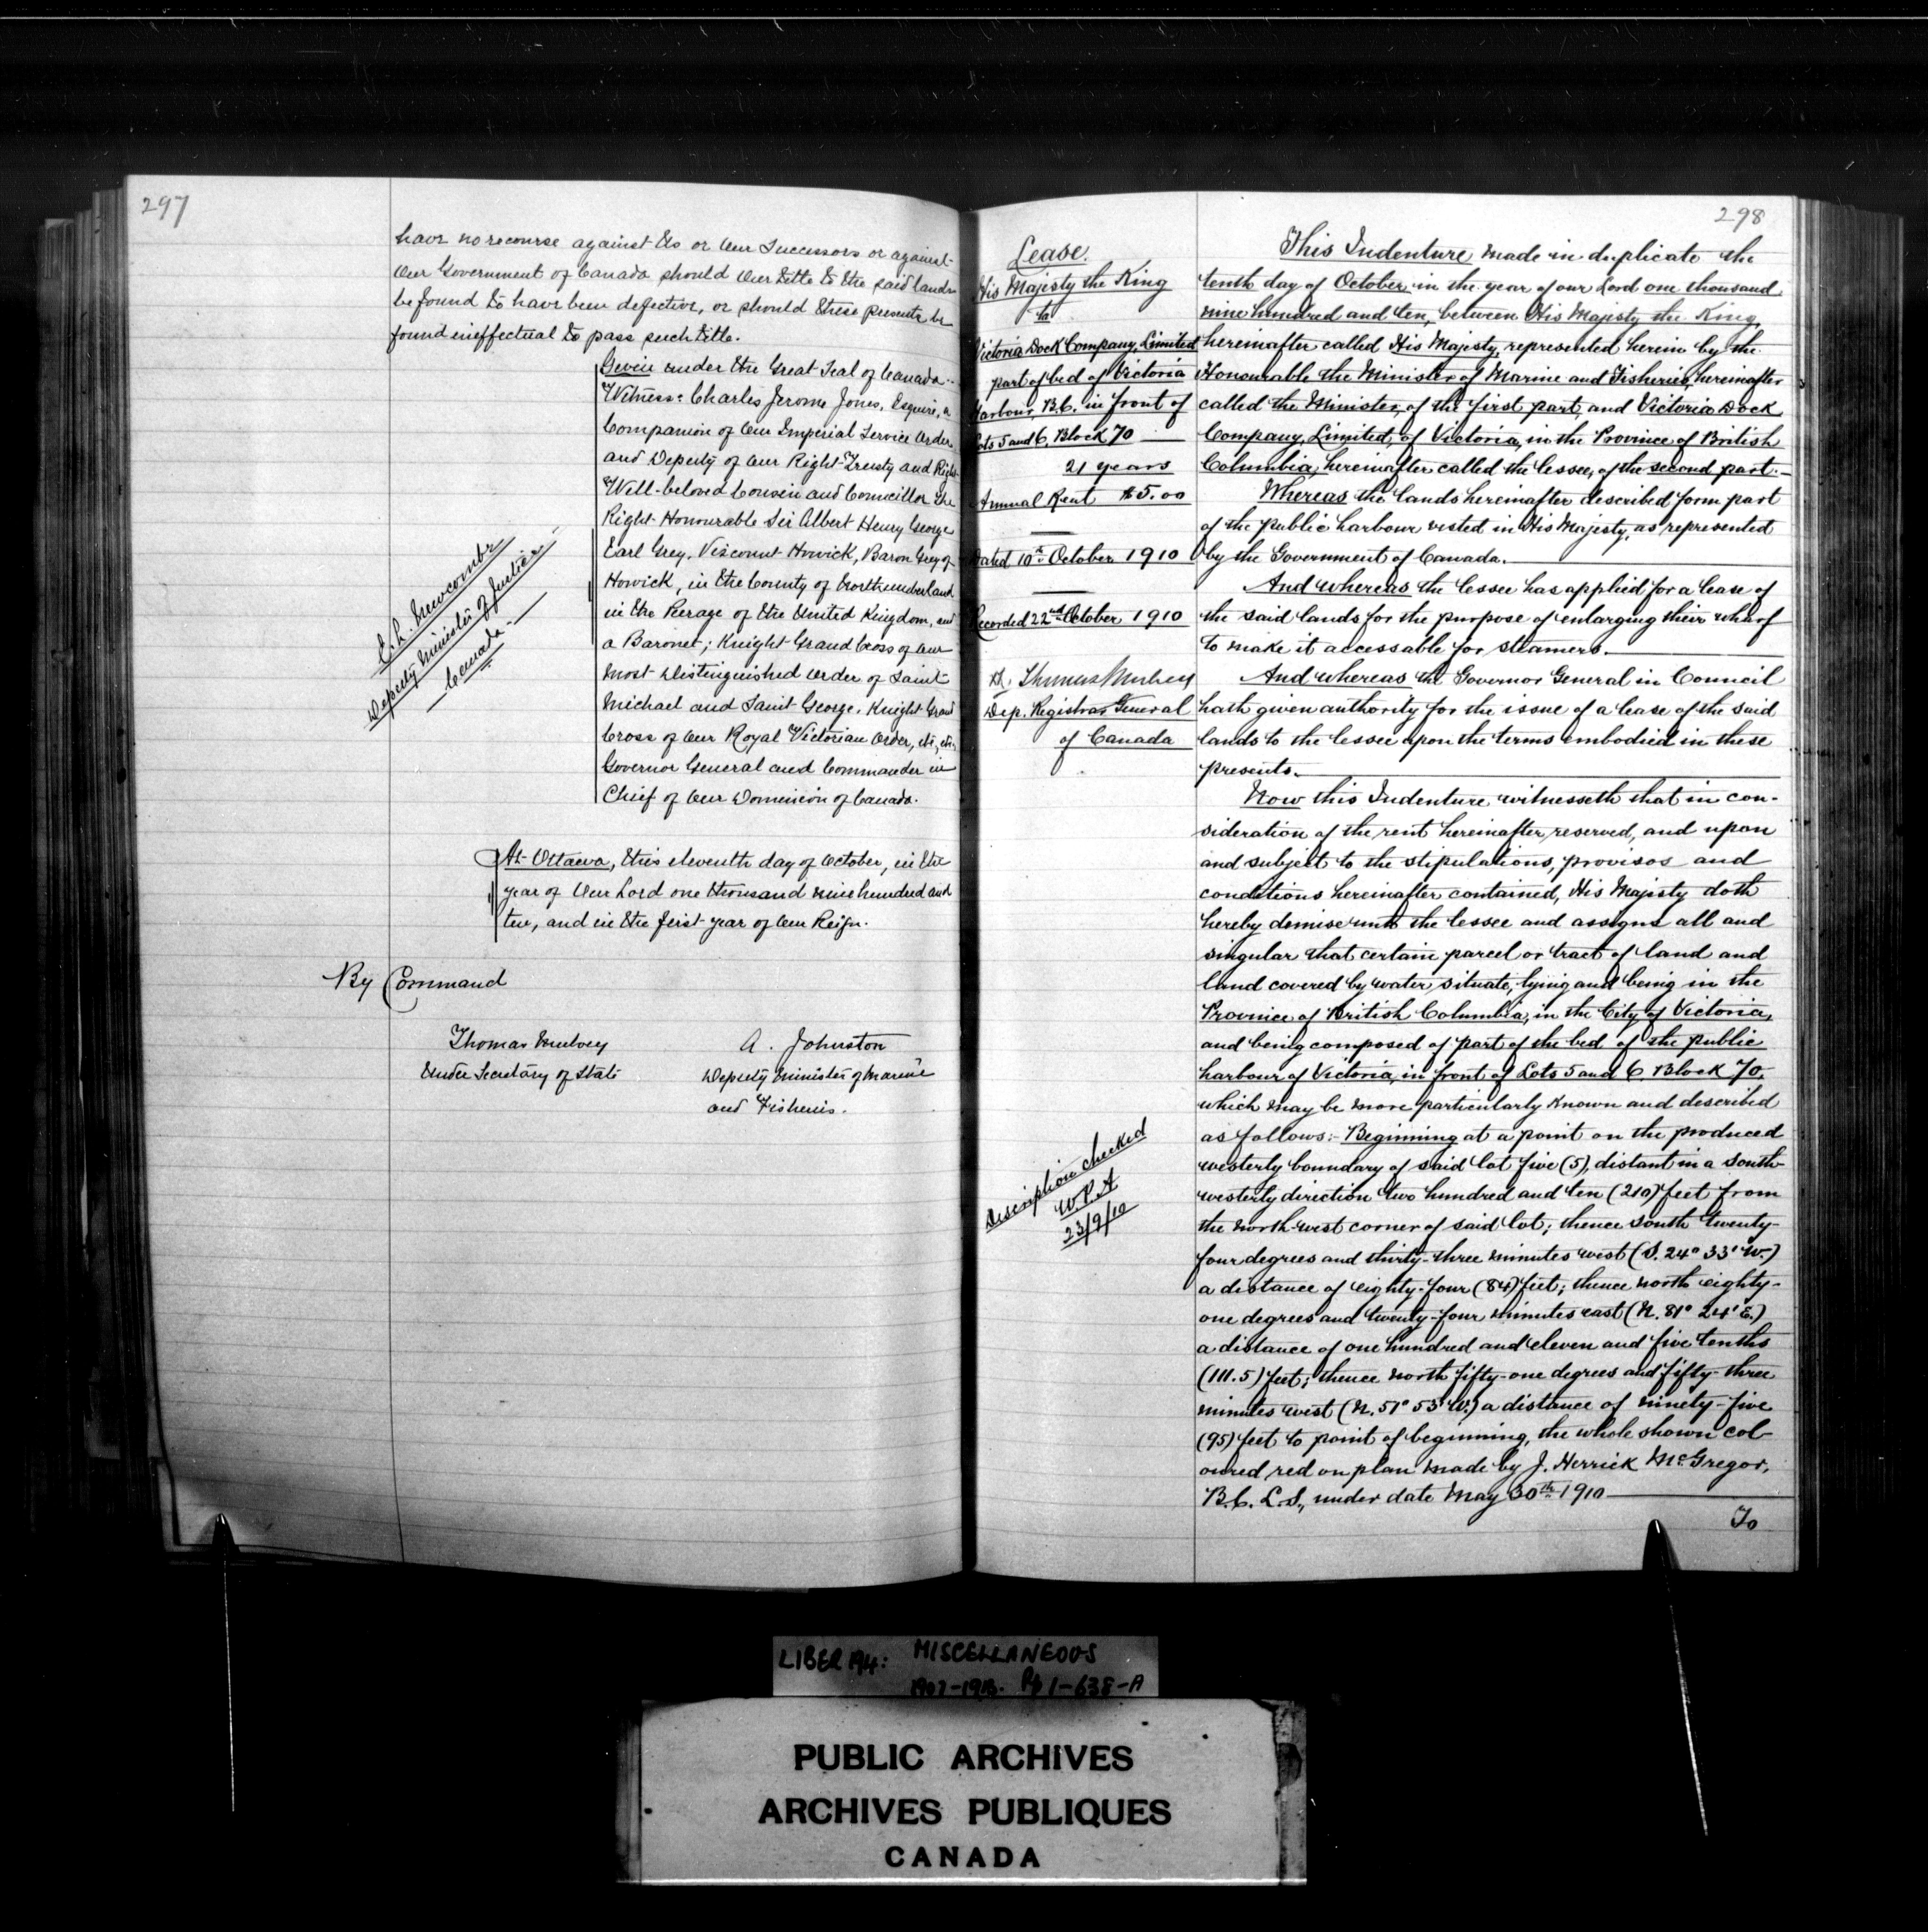 297
have no recourse against Us or Our Successors or against
Our Government of Canada should Our title to the said lands
be found to have been defective, or should these presents be
found ineffectual to pass such title.
Given under the Great Seal of Canada.
Witness: Charles Jerome Jones, Esquire, a
Companion of Our Imperial Service Order
and Deputy of Our Right Trusty and Right
Well-beloved Cousin and Councillor the
Right Honourable Sir Albert Henry George
Earl Grey, Viscount Howick, Baron Grey of
Howick, in the County of Northumberland
in the Peerage of the United Kingdom, and
a Baronet; Knight Grand Cross of Our
Most Distinguished Order of Saint
Michael and Saint George, Knight Grand
Cross of Our Royal Victorian Order, etc, etc,
Governor General and Commander in
Chief of Our Dominion of Canada.
E. L. Newcombe
Deputy Minister of Justice,
Canada
At Ottawa, this eleventh day of October, in the
year of Our Lord one thousand nine hundred and
ten, and in the first year of Our Reign.
By Command
Thomas Mulvey
Under Secretary of State
A. Johnston
Deputy Minister of Marine
and Fisheries.
298
Lease.
His Majesty the King
to
Victoria Dock Company, Limited
part of bed of Victoria
Harbour, B.C. in front of
Lots 5 and 6, Block 70
21 years
Annual Rent $5.00
Dated 10th October 1910
Recorded 22nd October 1910
Thomas Mulvey
Dep. Registrar General
of Canada
Description checked
23/9/10
This Indenture made in duplicate the
tenth day of October in the year of our Lord one thousand
nine hundred and ten, between His Majesty the King,
hereinafter called His Majesty, represented herein by the
Honourable the Minister of Marine and Fisheries, hereinafter
called the Minister, of the first part, and Victoria Dock
Company, Limited, of Victoria, in the Province of British
Columbia, hereinafter called the lessee, of the second part.
Whereas the lands hereinafter described form part
of the public harbour vested in His Majesty, as represented
by the Government of Canada.
And whereas the lessee has applied for a lease of
the said lands for the purpose of enlarging their wharf
to make it accessable for steamers.
And whereas the Governor General in Council
hath given authority for the issue of a lease of the said
lands to the lessee upon the terms embodied in these
presents.
Now this Indenture witnesseth that in con-
sideration of the rent hereinafter reserved, and upon
and subject to the stipulations, provisos and
conditions hereinafter contained, His Majesty doth
hereby demise unto the lessee and assigns all and
singular that certain parcel or tract of land and
land covered by water, situate, lying and being in the
Province of British Columbia, in the City of Victoria,
and being composed of part of the bed of the public
harbour of Victoria, in front of Lots 5 and 6, Block 70,
which may be more particularly known and described
as follows:- Beginning at a point on the produced
westerly boundary of said lot five (5), distant in a south-
westerly direction two hundred and ten (210) feet from
the north-west corner of said lot; thence south twenty-
four degrees and thirty-three minutes west (S. 24° 33' W.)
a distance of eighty-four (84) feet; thence north eighty-
one degrees and twenty-four minutes east (N. 81° 24' E.)
a distance of one hundred and eleven and five tenths
(111.5) feet; thence north fifty-one degrees and fifty-three
minutes west (N. 51° 53' W.) a distance of ninety-five
(95) feet to point of beginning, the whole shown col-
oured red on plan made by J. Herrick McGregor,
B.C. L.S., under date May 30th 1910
To
LIBER 194: MISCELLANEOUS
PUBLIC ARCHIVES
ARCHIVES PUBLIQUES
CANADA